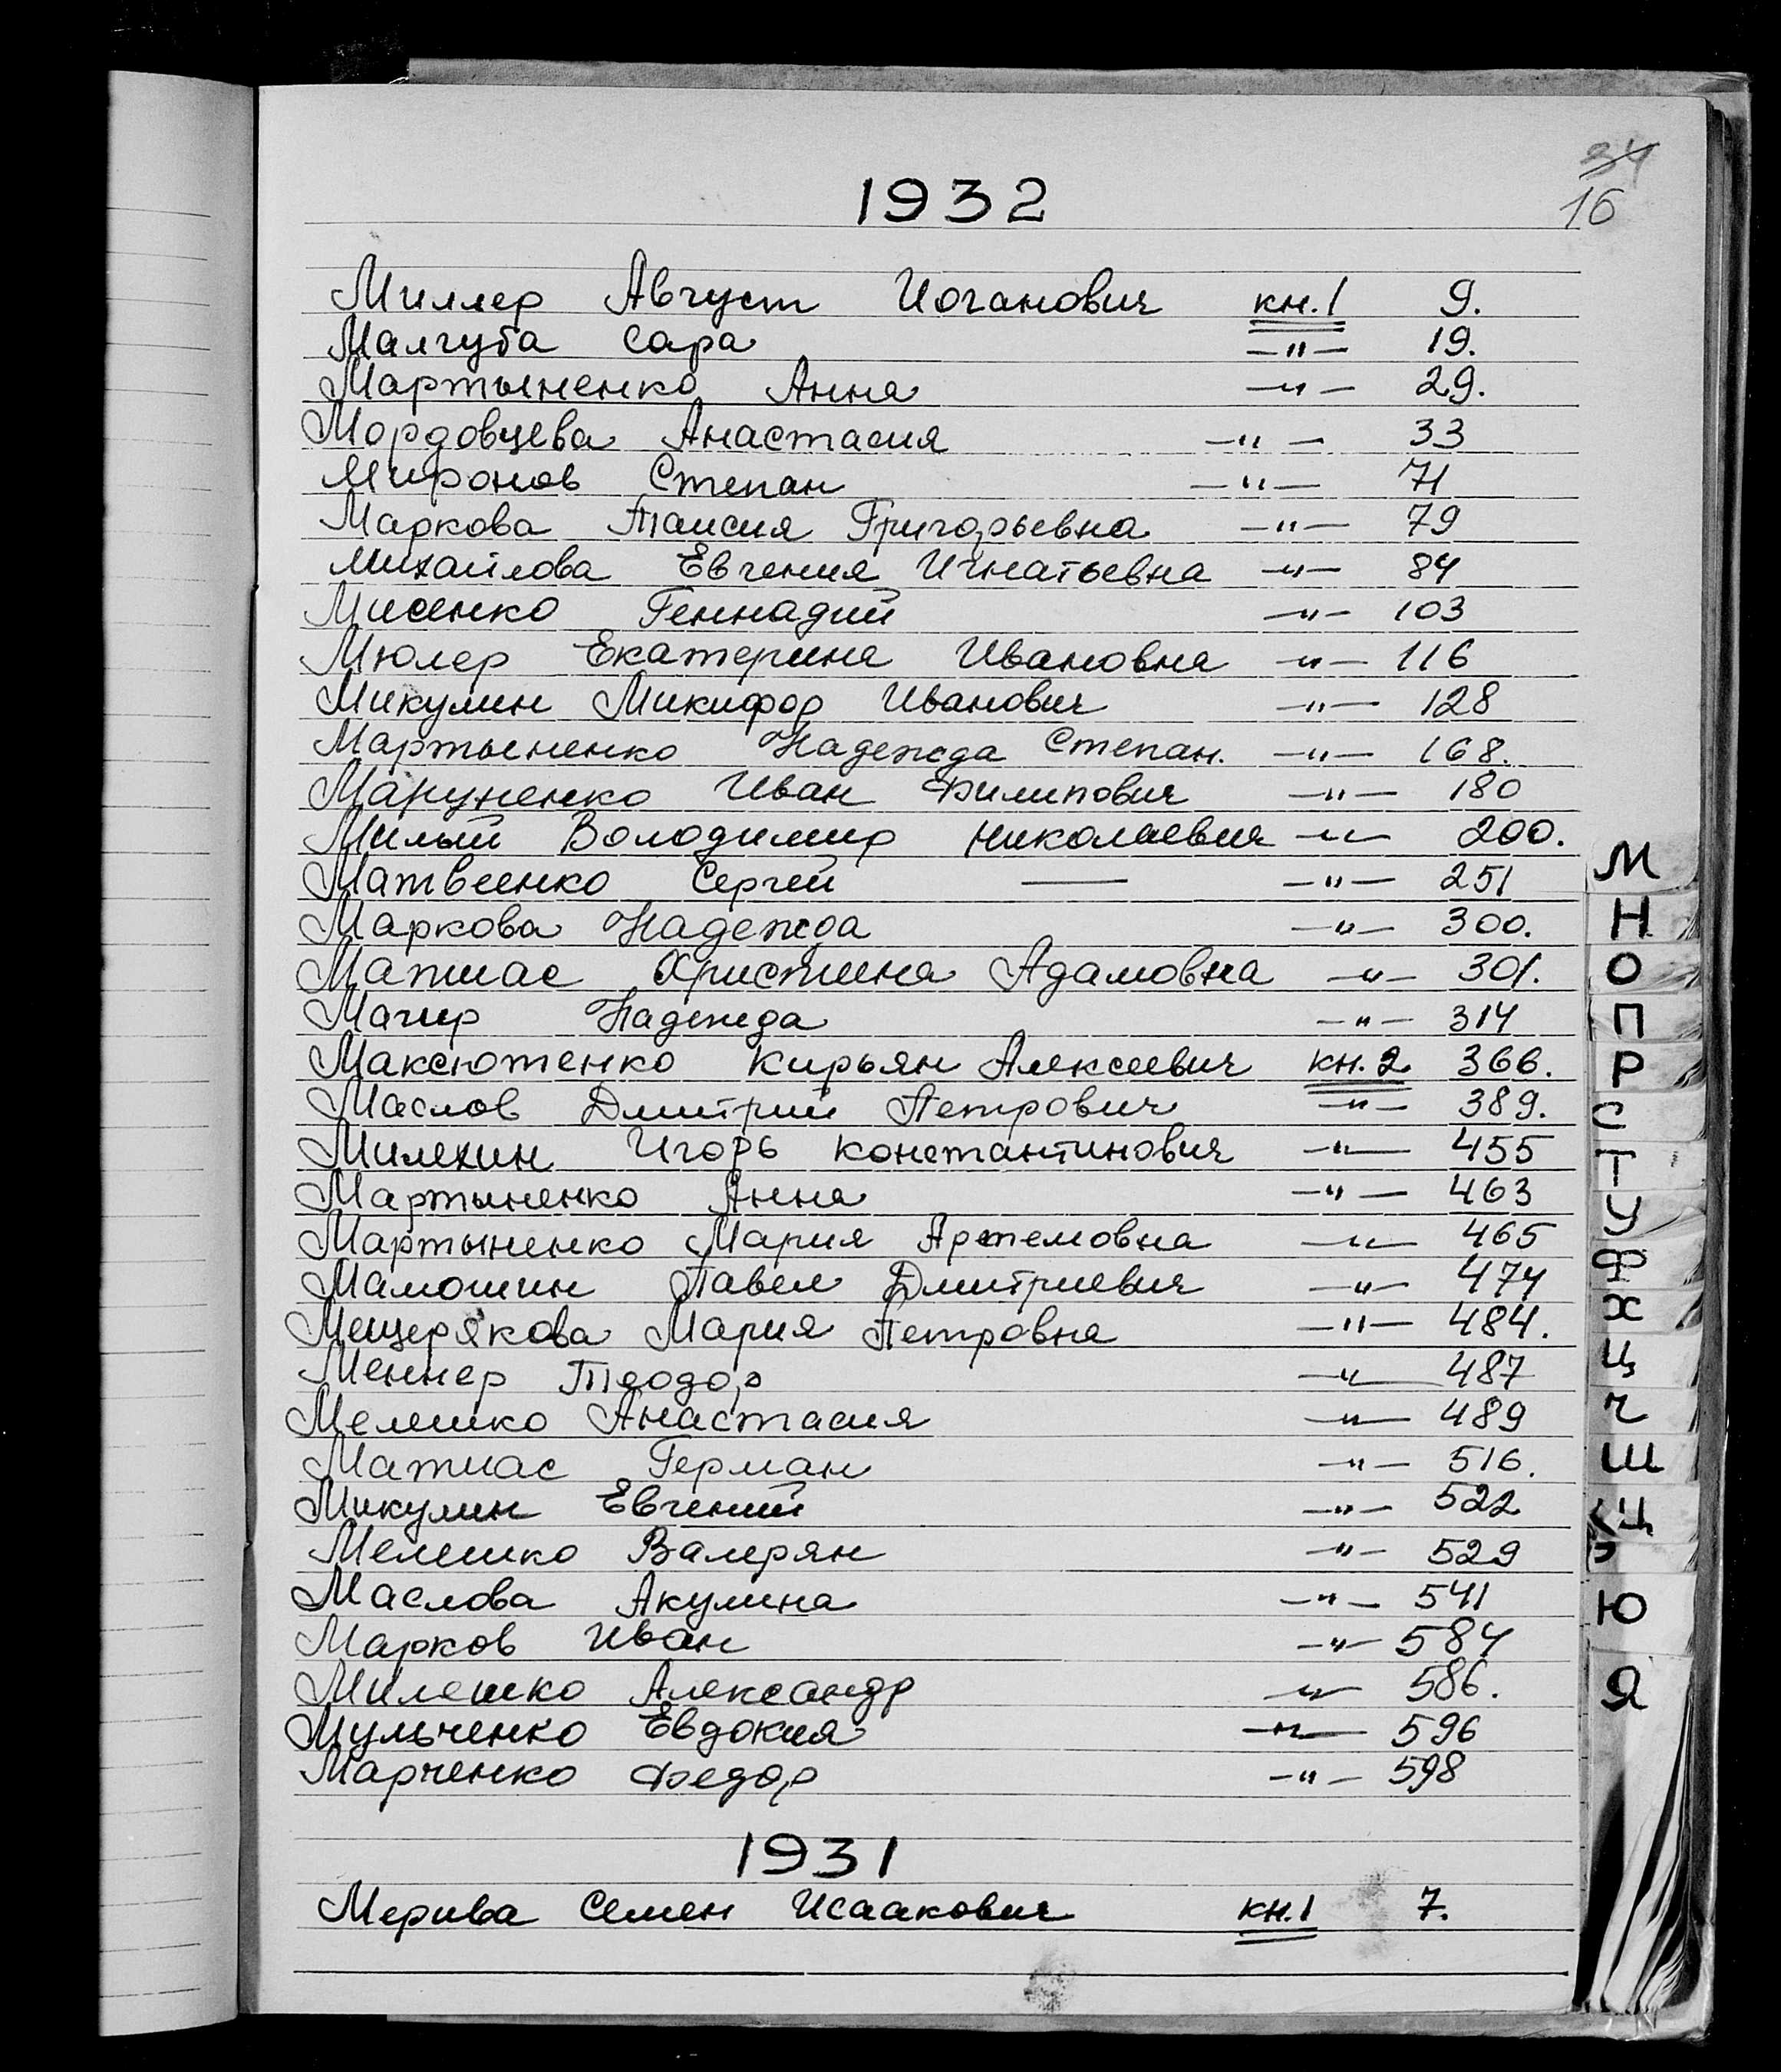 34
16
1932
Миллер Август Иоганович кн.1 9.
Малгуба Сара —"— 19.
Мартыненко Анна —"— 29.
Мордовцева Анастасия —"— 33
Миронов Степан —"— 71
Маркова Таисия Григорьевна —"— 79
Михайлова Евгения Игнатьевна —"— 84
Мисенко Геннадий —"— 103
Мюлер Екатерина Ивановна —"— 116
Микулин Микифор Иванович —"— 128
Мартыненко Надежда Степан. —"— 168.
Маруненко Иван Филипович —"— 180
Милый Володимир Николаевич —"— 200.
Матвеенко Сергей —— —"— 251
Маркова Надежда —"— 300.
Матиас Христина Адамовна —"— 301.
Магир Надежда —"— 314
Максютенко Кирьян Алексеевич кн.2 366.
Маслов Дмитрий Петрович —"— 389.
Милехин Игорь Константинович —"— 455
Мартыненко Анна —"— 463
Мартыненко Мария Артемовна —"— 465
Мамошин Павел Дмитриевич —"— 474
Мещерякова Мария Петровна —"— 484.
Меннер Теодор —"— 487
Мелешко Анастасия —"— 489
Матиас Герман —"— 516.
Микулин Евгений —"— 522
Мелешко Валерян —"— 529
Маслова Акулина —"— 541
Марков Иван —"— 584
Милешко Александр —"— 586.
Мульченко Евдокия —"— 596
Марченко Федор —"— 598
1931
Мерива Семен Исаакович кн.1 7.
М
Н
О
П
Р
С
Т
У
Ф
Х
Ц
Ч
Ш
Щ
Э
Ю
Я